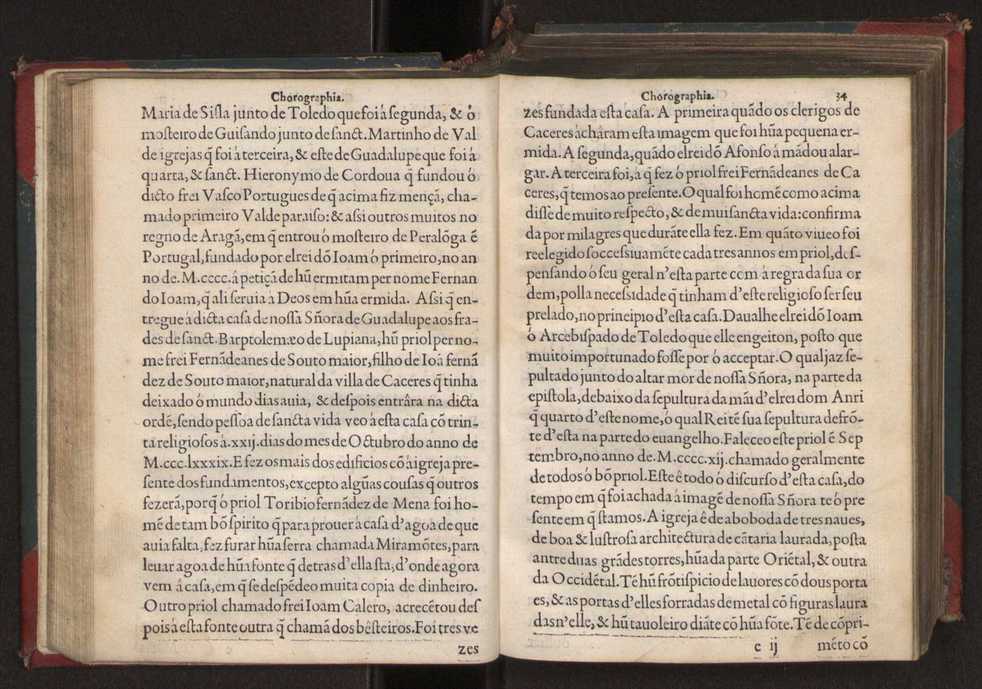 Chorographia.
Maria de Sisla junto de Toledo que foi á segunda, & ò
mosteiro de Guisando junto de sanct. Martinho de Val
de igrejas q̃ foi á terceira, & este de Guadalupe que foi á
quarta, & sanct. Hieronymo de Cordoua q̃ fundou ó
dicto frei Vasco Portugues de q̃ acima fiz mençã, cha-
mado primeiro Valde paraiso: & assi outros muitos no
regno de Aragã, em q̃ entrou ó mosteiro de Peralõga ẽ
Portugal, fundado por elrei dõ Ioam ó primeiro, no an
no de. M.cccc. á petiçã de hũ ermitam per nome Fernan
do Ioam, q̃ ali seruia à Deos em hũa ermida. Assi q̃ en-
tregue à dicta casa de nossa Sñora de Guadalupe aos fra-
des de sanct. Barptolemæo de Lupiana, hũ priol per no-
me frei Fernãdeanes de Souto maior, filho de Ioã fernã
dez de Souto maior, natural da villa de Caceres q̃ tinha
deixado ó mundo dias auia, & despois entrâra na dicta
ordẽ, sendo pessoa de sancta vida veo à esta casa cõ trin-
ta religiosos á.xxij. dias do mes de Octubro do anno de
M.ccc.lxxxix. E fez os mais dos edificios cõ à igreja pre-
sente dos fundamentos, excepto algũas cousas q̃ outros
fezerã, porq̃ ó priol Toribio fernãdez de Mena foi ho-
mẽ de tam bõ spirito q̃ para prouer à casa d'agoa de que
auia falta, fez furar hũa serra chamada Miramõtes, para
leuar agoa de hũa fonte q̃ detras d'ella sta, d'onde agora
vem á casa, em q̃ se despẽdeo muita copia de dinheiro.
Outro priol chamado frei Ioam Calero, acrecẽtou des
pois à esta fonte outra q̃ chamã dos bẽsteiros. Foi tres ve
zes
Chorographia. 34
zes fundada esta casa. A primeira quãdo os clerigos de
Caceres àcháram esta imagem que foi hũa pequena er-
mida. A segunda, quãdo elrei dõ Afonso á mãdou alar-
gar. A terceira foi, à q̃ fez ó priol frei Fernãdeanes de Ca
ceres, q̃ temos ao presente. O qual foi homẽ como acima
disse de muito respecto, & de mui sancta vida: confirma
da por milagres que durãte ella fez. Em quãto viueo foi
reelegido soccessiuamẽte cada tres annos em priol, dis-
pensando ó seu geral n'esta parte com á regra da sua or
dem, polla necessidade q̃ tinham d'este religioso ser seu
prelado, no principio d'esta casa. Daualhe elrei dõ Ioam
ó Arcebispado de Toledo que elle engeiton, posto que
muito importunado fosse por ó acceptar. O qual jaz se-
pultado junto do altar mor de nossa Sñora, na parte da
epistola, debaixo da sepultura da mãi d'elrei dom Anri
q̃ quarto d'este nome, ó qual Rei tẽ sua sepultura defrõ-
te d'esta na parte do euangelho. Faleceo este priol ẽ Sep
tembro, no anno de. M.cccc.xij. chamado geralmente
de todos ó bõ priol. Este ê todo ó discurso d'esta casa, do
tempo em q̃ foi achada á imagẽ de nossa Sñora te ó pre
sente em q̃ stamos. A igreja ê de aboboda de tres naues,
de boa & lustrosa architectura de cãtaria laurada, posta
antre duas grãdes torres, hũa da parte Oriẽtal, & outra
da Occidẽtal. Tẽ hũ frõtispicio de lauores cõ dous porta
es, & as portas d'elles forradas de metal cõ figuras laura
das n'elle, & hũ tauoleiro diãte cõ hũa fõte. Tẽ de cõpri-
e ij mẽto cõ